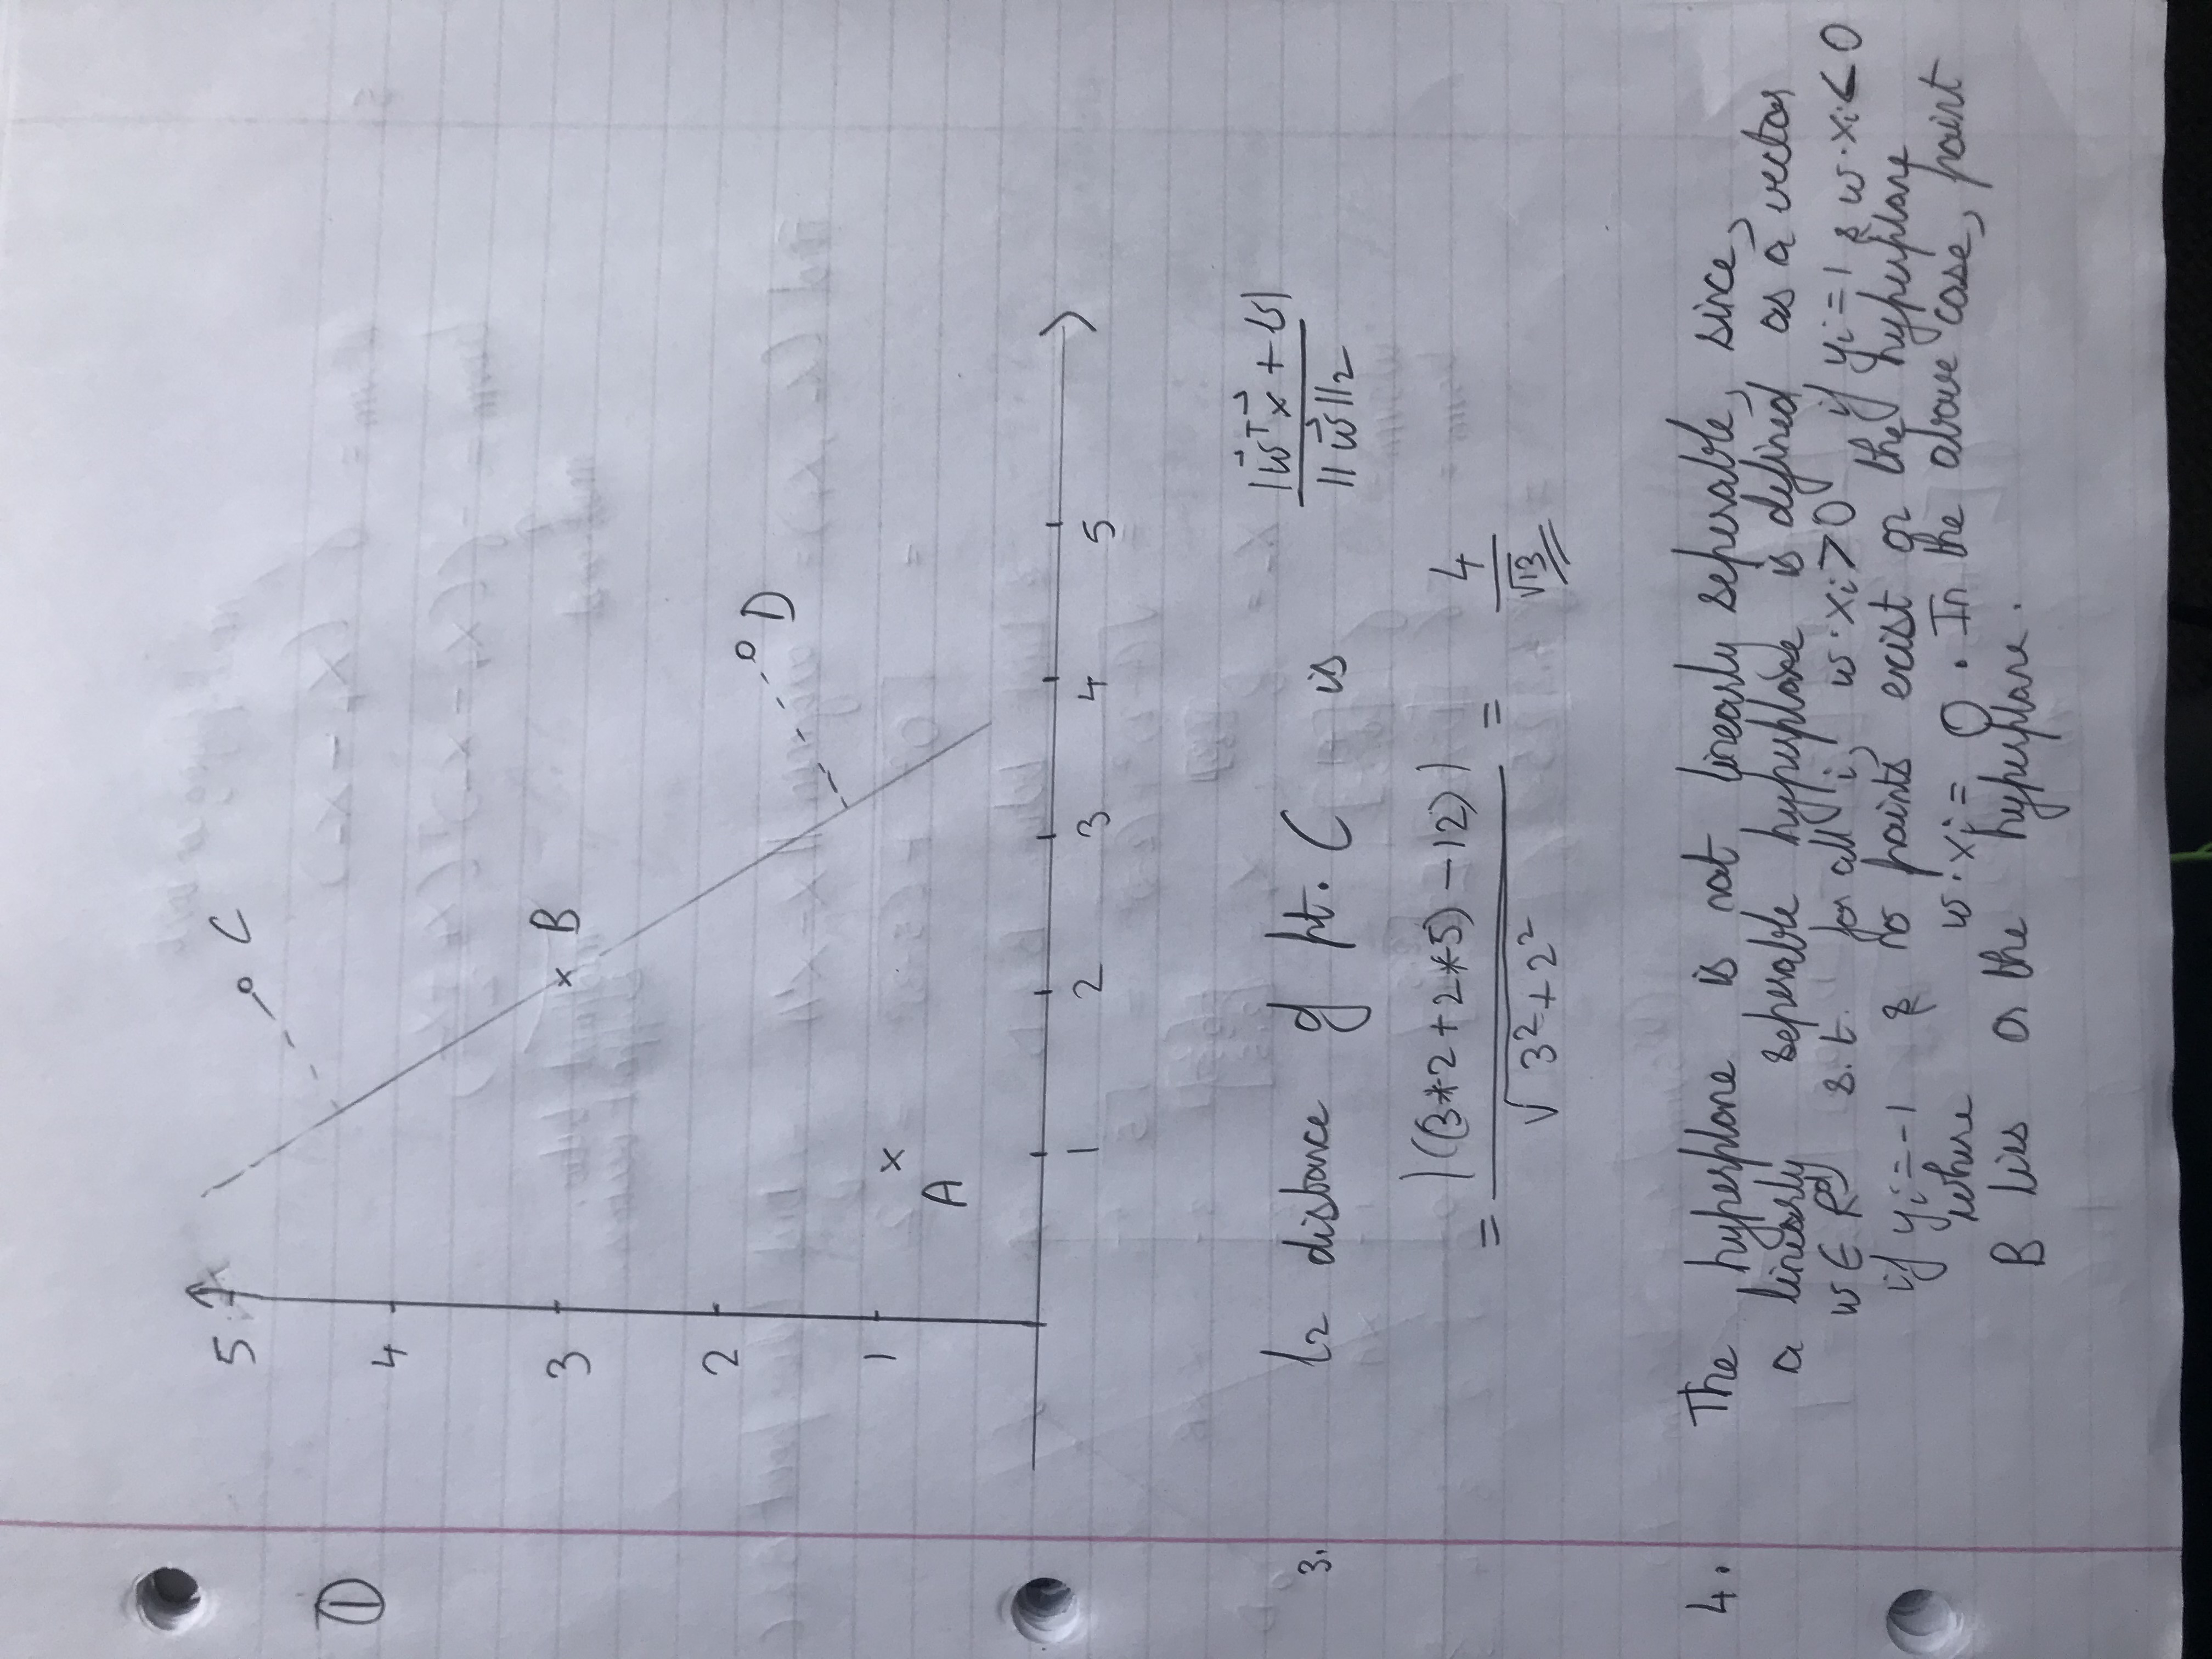 5
C
①
4
3
B
2
D
1
A
1 2 3 4 5
3. l₂ distance of pt. C is |w⃗ᵀx⃗ + b| / ||w⃗||₂
= |((3*2+2*5) -12)| / √3²+2² = 4/√13
4. The hyperplane is not linearly seperable, since,
a linearly seperable hyperplane is defined as a vector
w ∈ Rᵈ s.t. for all i, w·xᵢ>0 if yᵢ=1 & w·xᵢ<0
if yᵢ=-1 & no points exist on the hyperplane
where w·xᵢ= 0. In the above case, point
B lies on the hyperplane.